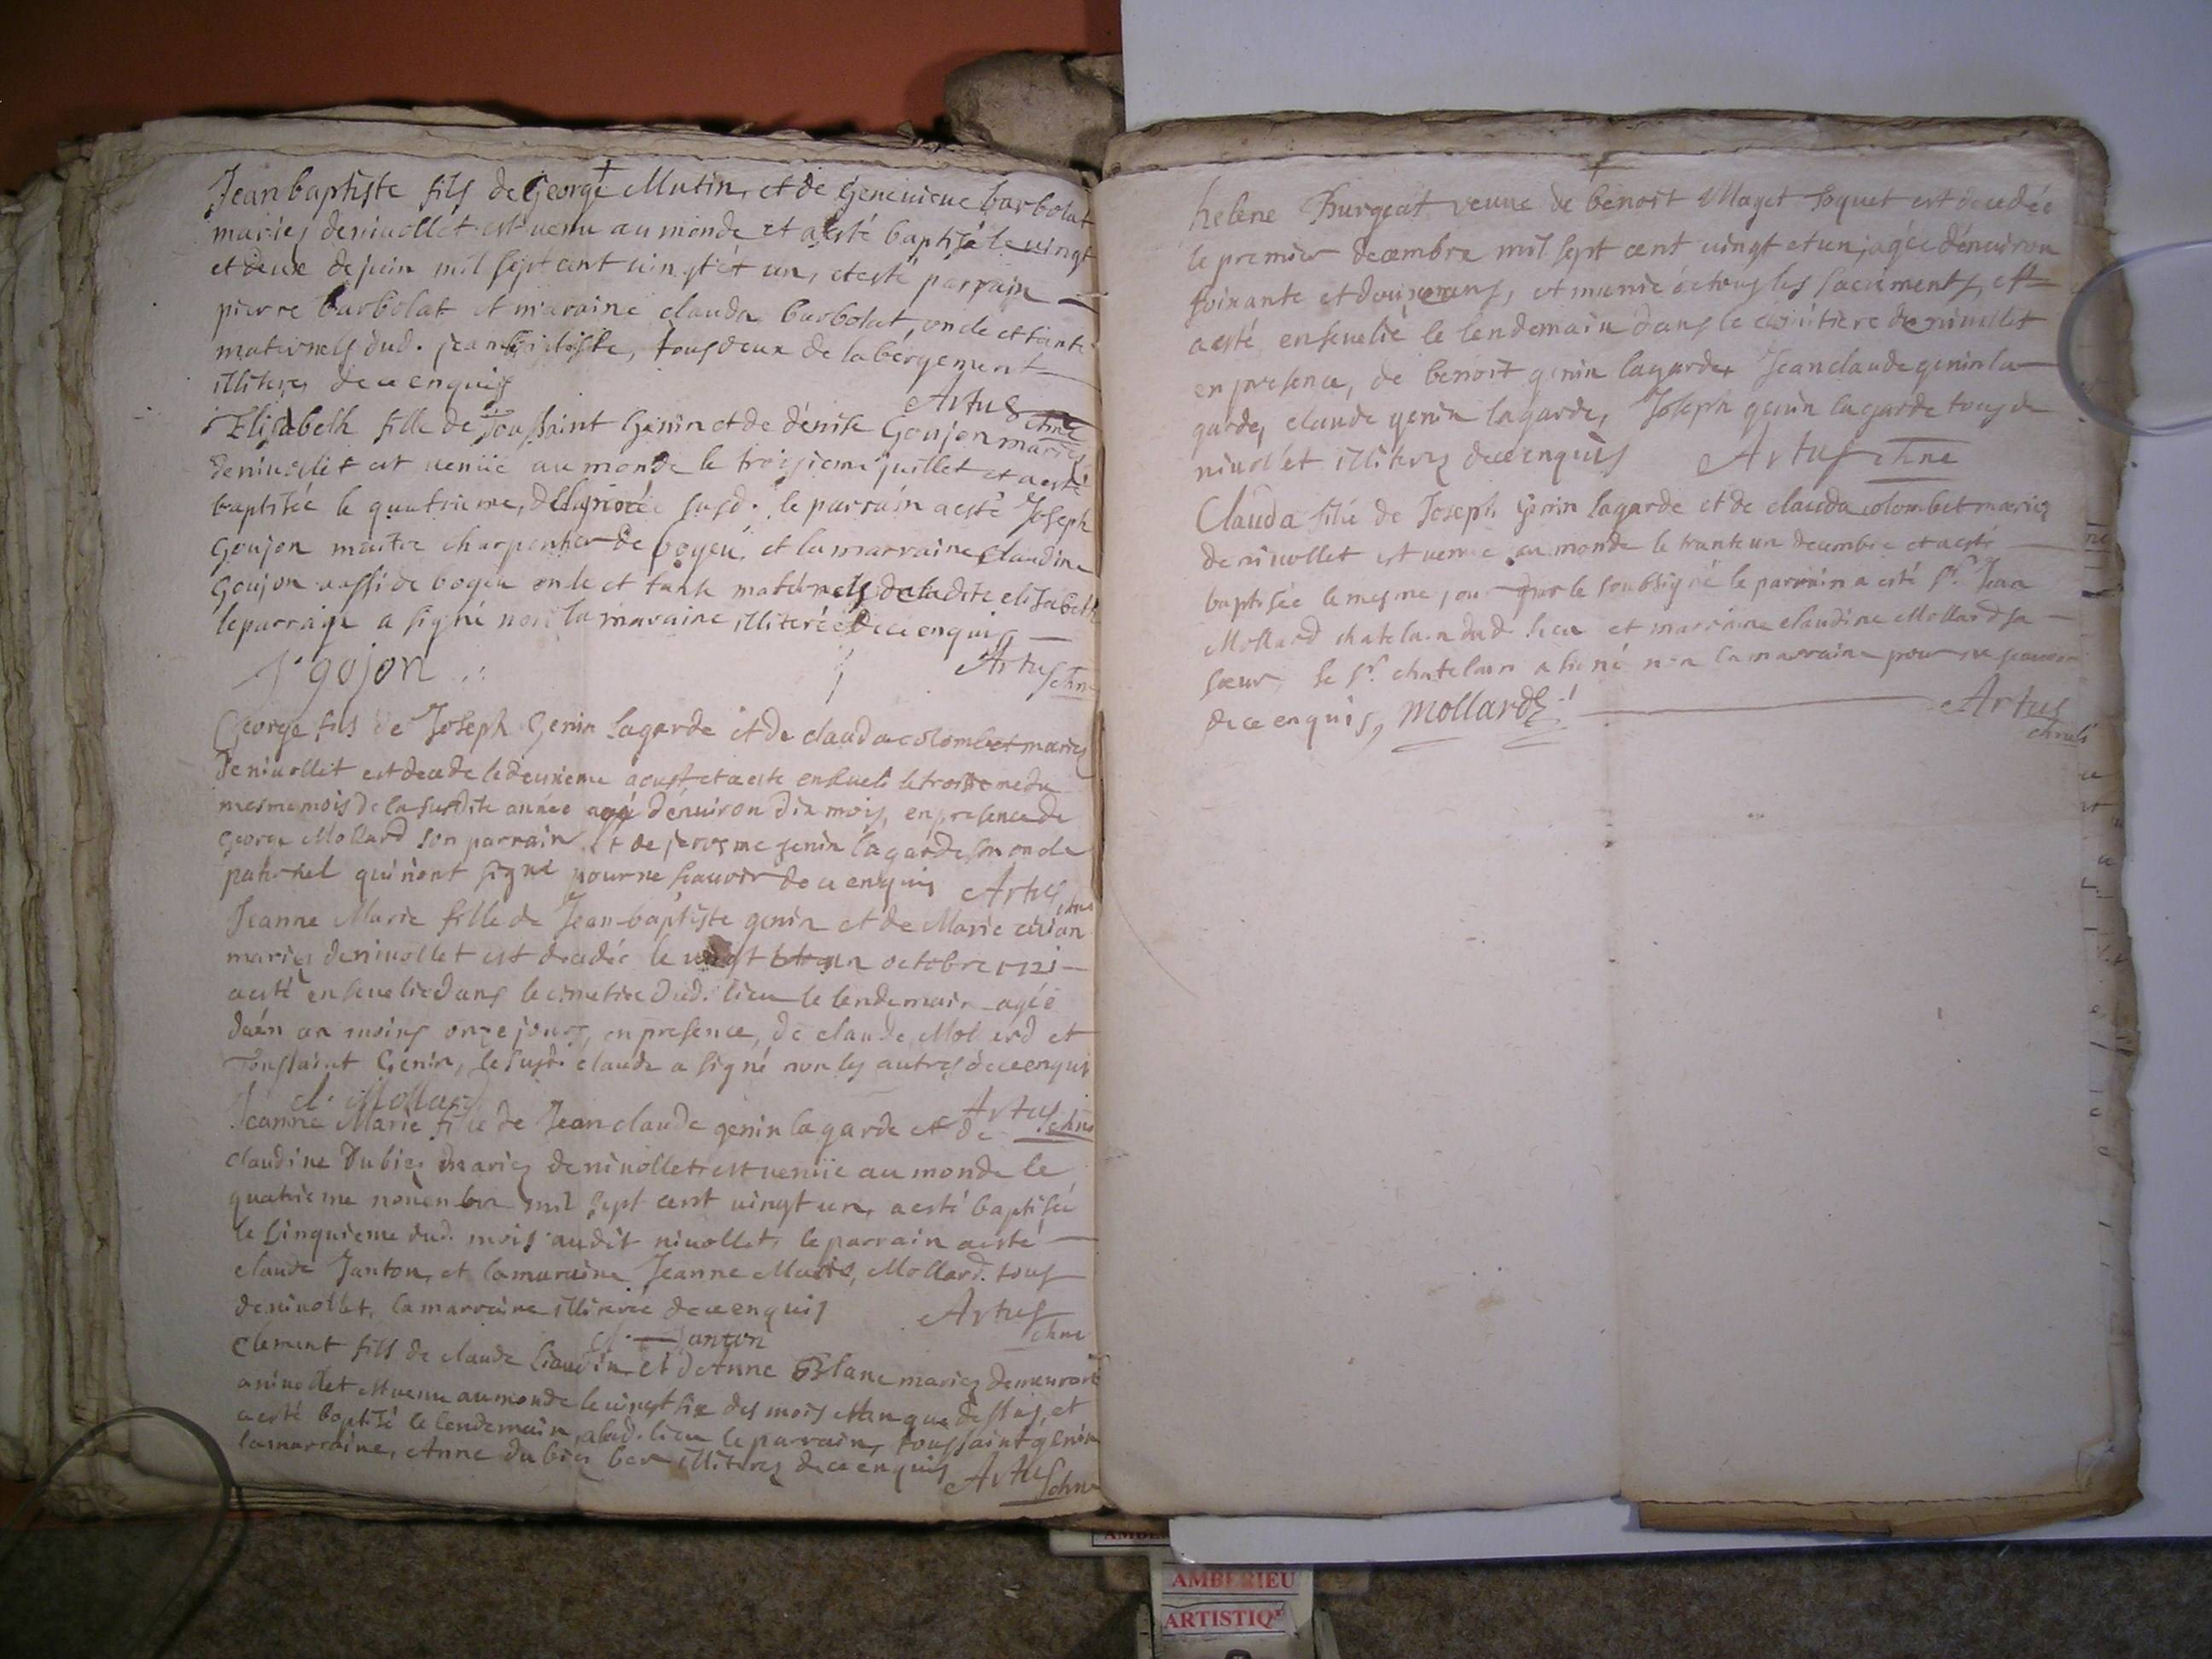 Jean baptiste fils de George Mutin, et de Geneuieue barbolat
mariez deniuollet est uenu au monde et a esté baptisé le uingt
et deux de juin mil sept cent uingt et un, et esté parrain
pierre barbolat et maraine clauda barbolat, oncle et tante
maternels dud. jean baptiste, tous deux de labergement
illiterez de ce enquis
Artus chne
Elisabeth fille de Toussaint Genin et de dénise Goujon mariez
deniuollet est uenüe au monde le troisieme juillet et a esté
baptisée le quatrieme, de lannée susd. le parrain a esté Joseph
Goujon maitre charpentier de boyeu, et la marraine claudine
Goujon aussi de boyeu oncle et tante maternels de ladite elisabeth
le parrain a signé non la maraine illiterée de ce enquis
J. gojon
Artus chne
George fils de Joseph Genin lagarde et de clauda colombet mariez
De niuollet est decede le deuxieme aoust et a este enseueli le troisieme du
mesme mois de la susdite année agé dénuiron dix mois, en presence de
george Mollard son parrain et de jerosme genin lagarde son oncle
paternel qui n'ont signé pour ne scauoir de ce enquis Artus chne
Jeanne Marie fille de Jean-baptiste genin et de Marie
mariez deniuollet est decedée le uingt octobre 1721
a esté enseuelie dans le cimetiere dud. lieu le lendemain agée
duén an moins onze jours, en presence, de claude Mollard et
Toussaint Genin, le susd. claude a signé non les autres de ce enquis
cl. Mollard
Artus chne
Jeanne Marie fille de Jean claude genin lagarde et de
claudine Dubiez mariez deniuollet est uenüe au monde le
quatrieme nouembre mil sept cent uingt un, a esté baptisée
le cinquieme dud. mois audit niuollet, le parrain a esté
claude Janton, et la maraine Jeanne Marie, Mollard. tous
deniuollet, la marraine illiterée de ce enquis Artus chne
cl. Janton
Clement fils de claude liaudin et dAnne Blanc mariez demeurant
a niuollet est uenu au monde le uingt six des mois et an que dessus, et
a esté baptisé le lendemain, aud. lieu le parrain, toussaint genin
la marraine, Anne dubiez illiterez de ce enquis Artus chne
helene Burgeat veuue de benoit Maget est decedée
le premier decembre mil sept cent uingt et un, agée dénuiron
soixante et ans, et munie de tous les sacrements, et
a esté enseuelie le lendemain dans le cimitiere de niuollet
en presence, de benoit genin lagarde, Jean claude genin la
garde, claude genin lagarde, Joseph genin lagarde tous de
niuollet illiterez de ce enquis Artus chne
Clauda fille de Joseph Genin lagarde et de clauda colombet mariez
de niuollet est uenue au monde le trante un decembre et a esté
baptisée le mesme jour par le soubsigné le parrain a esté Sr. Jean
Mollard chatelain dud. lieu et marraine claudine Mollard sa
soeur, le Sr. chatelain a signé non la marraine pour ne scauoir
de ce enquis, Mollard Artus
AMBERIEU
ARTISTIQ